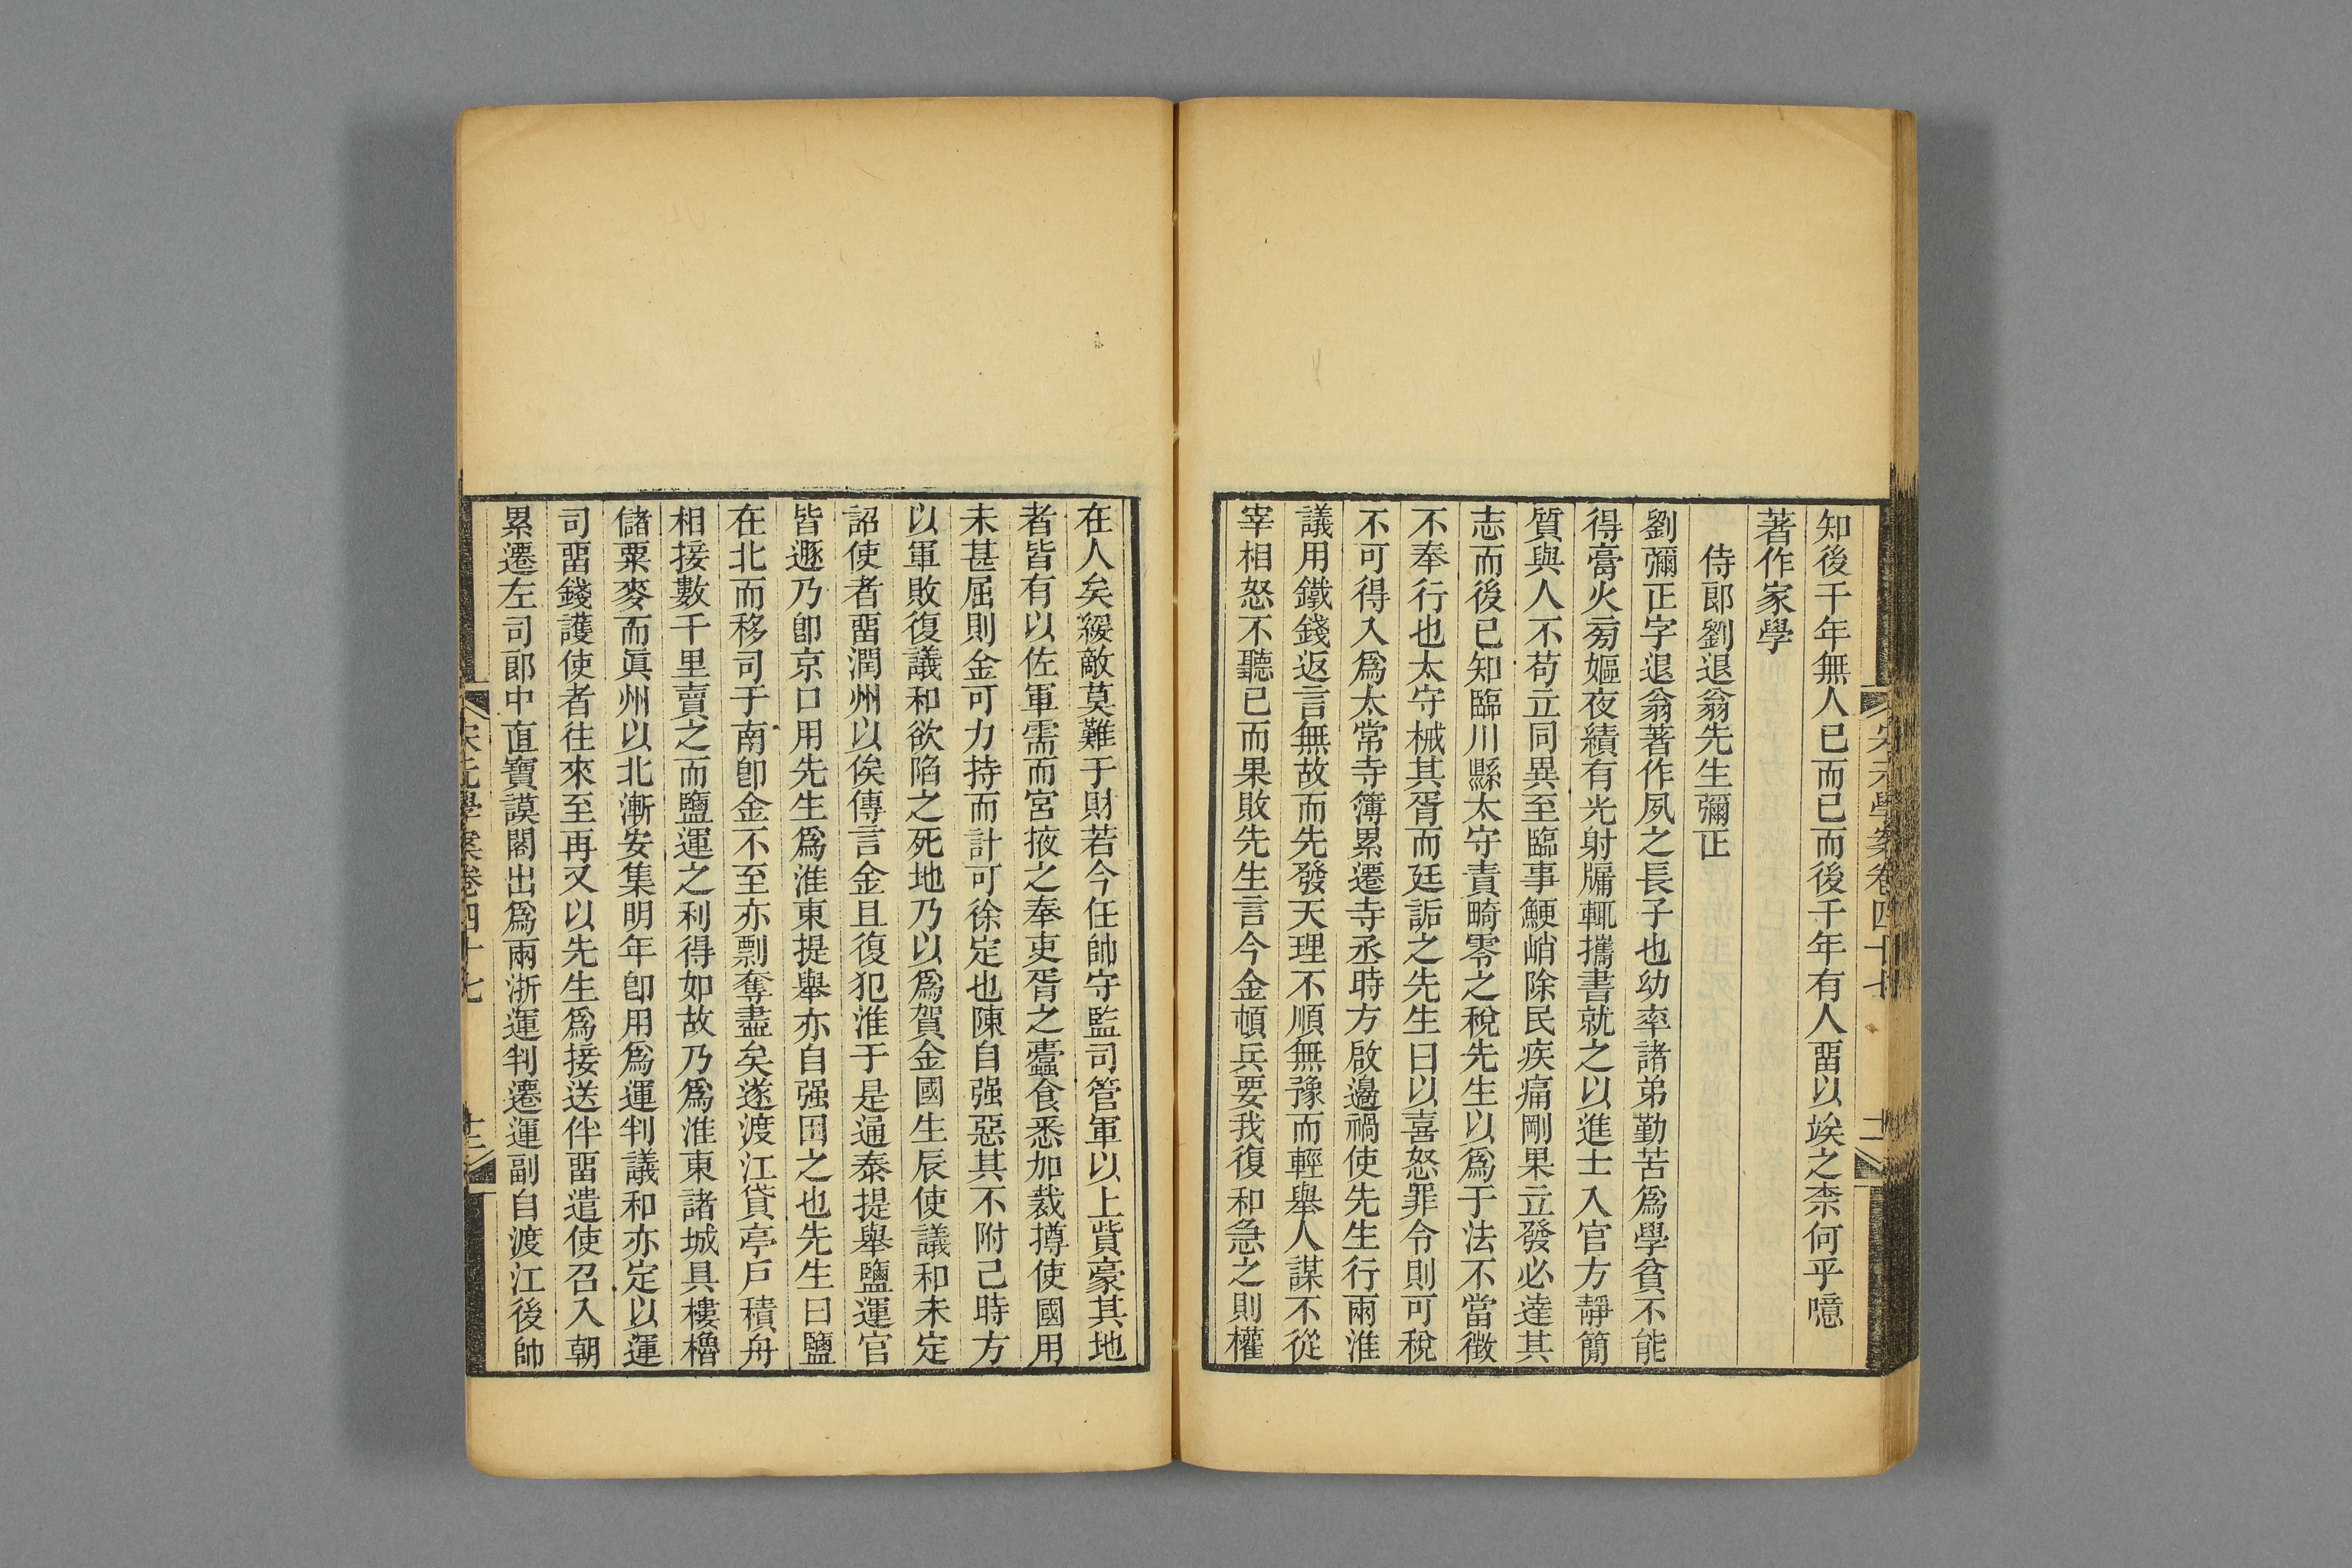 知後千年無人已而已而後千年有人畱以竢之柰何乎噫
著作家學
侍郎劉退翁先生彌正
劉彌正字退翁著作夙之長子也幼率諸弟勤苦爲學貧不能
得膏火旁嫗夜績有光射牖輒攜書就之以進士入官方靜簡
質與人不苟立同異至臨事鯁峭除民疾痛剛果立發必達其
志而後已知臨川縣太守責畸零之稅先生以爲于法不當徵
不奉行也太守械其胥而廷詬之先生曰以喜怒罪令則可稅
不可得入爲太常寺簿累遷寺丞時方啟邊禍使先生行兩淮
議用鐵錢返言無故而先發天理不順無豫而輕舉人謀不從
宰相怒不聽已而果敗先生言今金頓兵要我復和急之則權
在人矣緩敵莫難于財若今任帥守監司管軍以上貲豪其地
者皆有以佐軍需而宮掖之奉吏胥之蠹食悉加裁撙使國用
未甚屈則金可力持而計可徐定也陳自强惡其不附己時方
以軍敗復議和欲陷之死地乃以爲賀金國生辰使議和未定
詔使者畱潤州以俟傳言金且復犯淮于是通泰提舉鹽運官
皆遯乃卽京口用先生爲淮東提舉亦自强困之也先生曰鹽
在北而移司于南卽金不至亦剽奪盡矣遂渡江貸亭戶積舟
相接數千里賣之而鹽運之利得如故乃爲淮東諸城具樓櫓
儲粟麥而眞州以北漸安集明年卽用爲運判議和亦定以運
司畱錢護使者往來至再又以先生爲接送伴畱遣使召入朝
累遷左司郎中直寶謨閣出爲兩浙運判遷運副自渡江後帥
宋元學案卷四十七